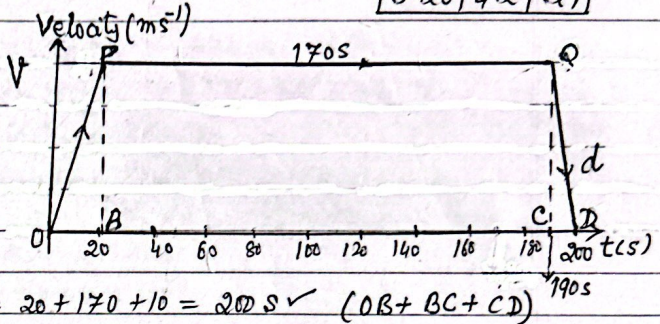 Velocity (ms⁻¹)
V P 170s Q
d
O B C D
20 40 60 80 100 120 140 160 180 200 t(s)
190s
20 + 170 + 10 = 200 s ✓ (OB + BC + CD)